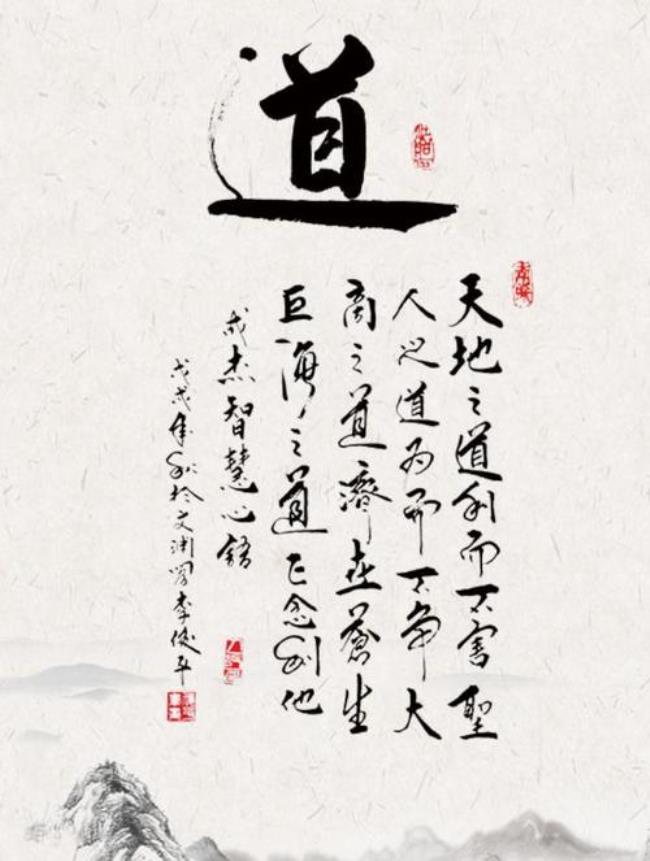 道
天地之道利而不害聖
人之道为而不争大
商之道濟在蒼生
巨海之道正念利他
成杰智慧心語
戊戌年秋於文渊閣李俊平